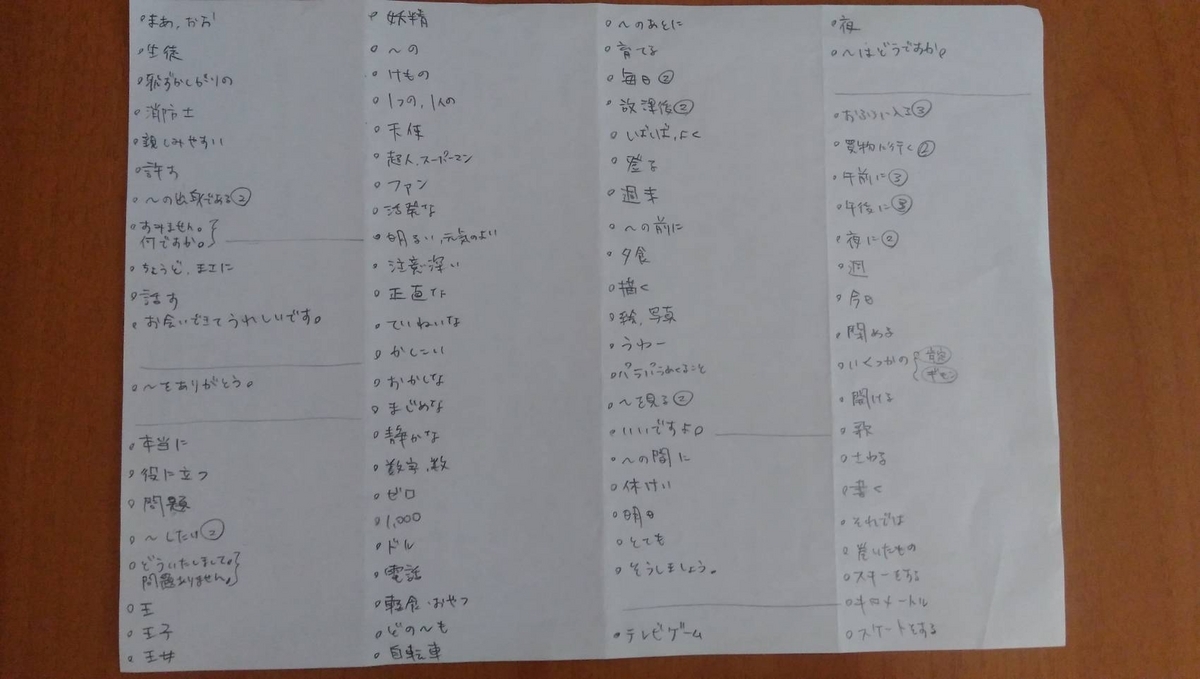 まあ、おお
生徒
恥ずかしがりの
消防士
親しみやすい
許す
〜の出身である②
すみません。
何ですか。
ちょうど、まさに
話す
お会いできてうれしいです。
〜をありがとう。
本当に
役に立つ
問題
〜したい②
どういたしまして。
問題ありません。
王
王子
王女
妖精
〜の
けもの
1つの、1人の
天使
超人、スーパーマン
ファン
活発な
明るい、元気のよい
注意深い
正直な
ていねいな
かしこい
おかしな
まじめな
静かな
数字、数
ゼロ
1,000
ドル
電話
軽食・おやつ
どの〜も
自転車
〜のあとに
育てる
毎日②
放課後②
しばしば、よく
登る
週末
〜の前に
夕食
描く
絵、写真
うわー
パラパラめくること
〜を見る②
いいですよ。
〜の間に
休けい
明日
とても
そうしましょう。
テレビゲーム
夜
〜はどうですか。
おふろに入る③
買物に行く②
午前に③
午後に③
夜に②
週
今日
閉める
いくつかの 肯定
ギモン
開ける
歌
さわる
書く
それでは
巻いたもの
スキーをする
キロメートル
スケートをする